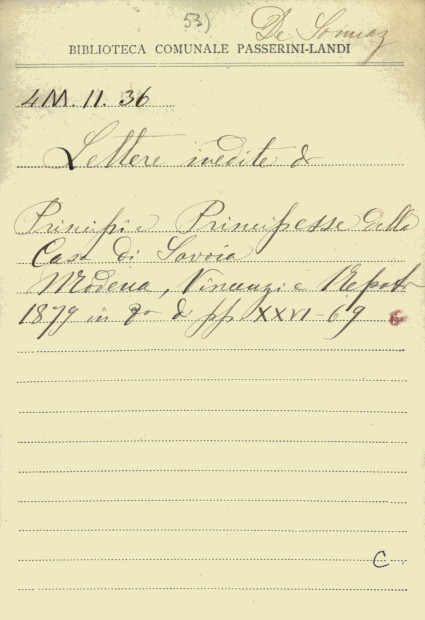 53) De Sonnaz
BIBLIOTECA COMUNALE PASSERINI-LANDI
4M. 11. 36
Lettere inedite di
Principi e Principesse della
Casa di Savoia
Modena, Vincenzi e Nipoti
1879 in 8° di pp XXVI-69
C